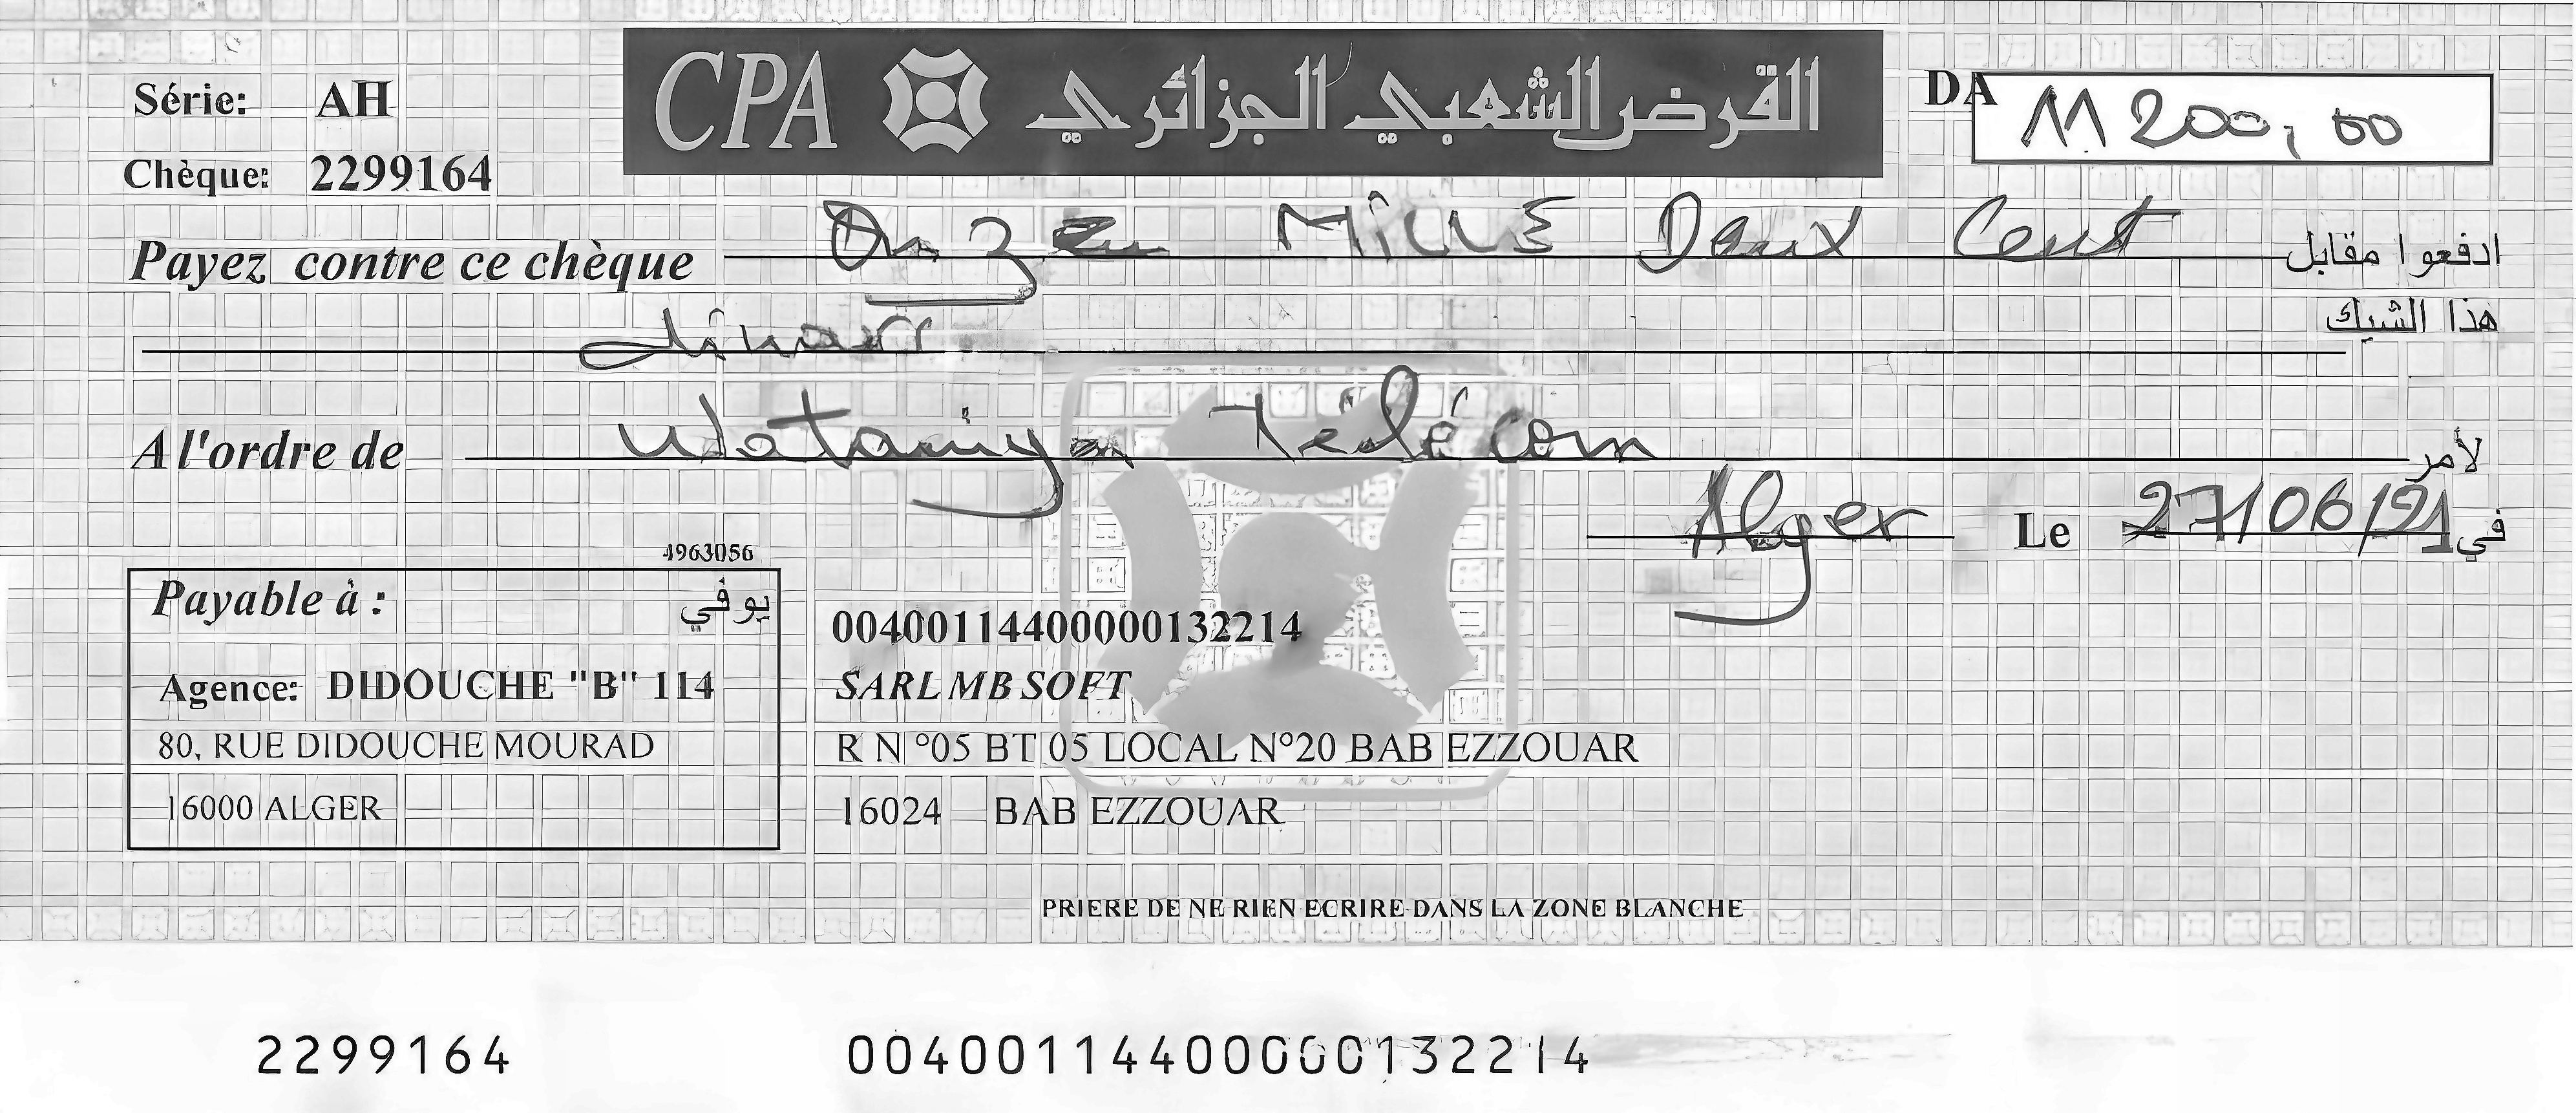 CPA القرض الشعبي الجزائري
Série: AH
DA 11 200,00
Chèque: 2299164
Payez contre ce chèque Onze Mille Deux Cent ادفعوا مقابل
هذا الشيك
dinars
A l'ordre de Wataniya Télécom لأمر
Alger Le 27/06/21 في
4963056
Payable à : يوفي
Agence: DIDOUCHE "B" 114
80, RUE DIDOUCHE MOURAD
16000 ALGER
00400114400000132214
SARL MB SOFT
R N °05 BT 05 LOCAL N°20 BAB EZZOUAR
16024 BAB EZZOUAR
PRIERE DE NE RIEN ECRIRE DANS LA ZONE BLANCHE
2299164 00400114400000132214